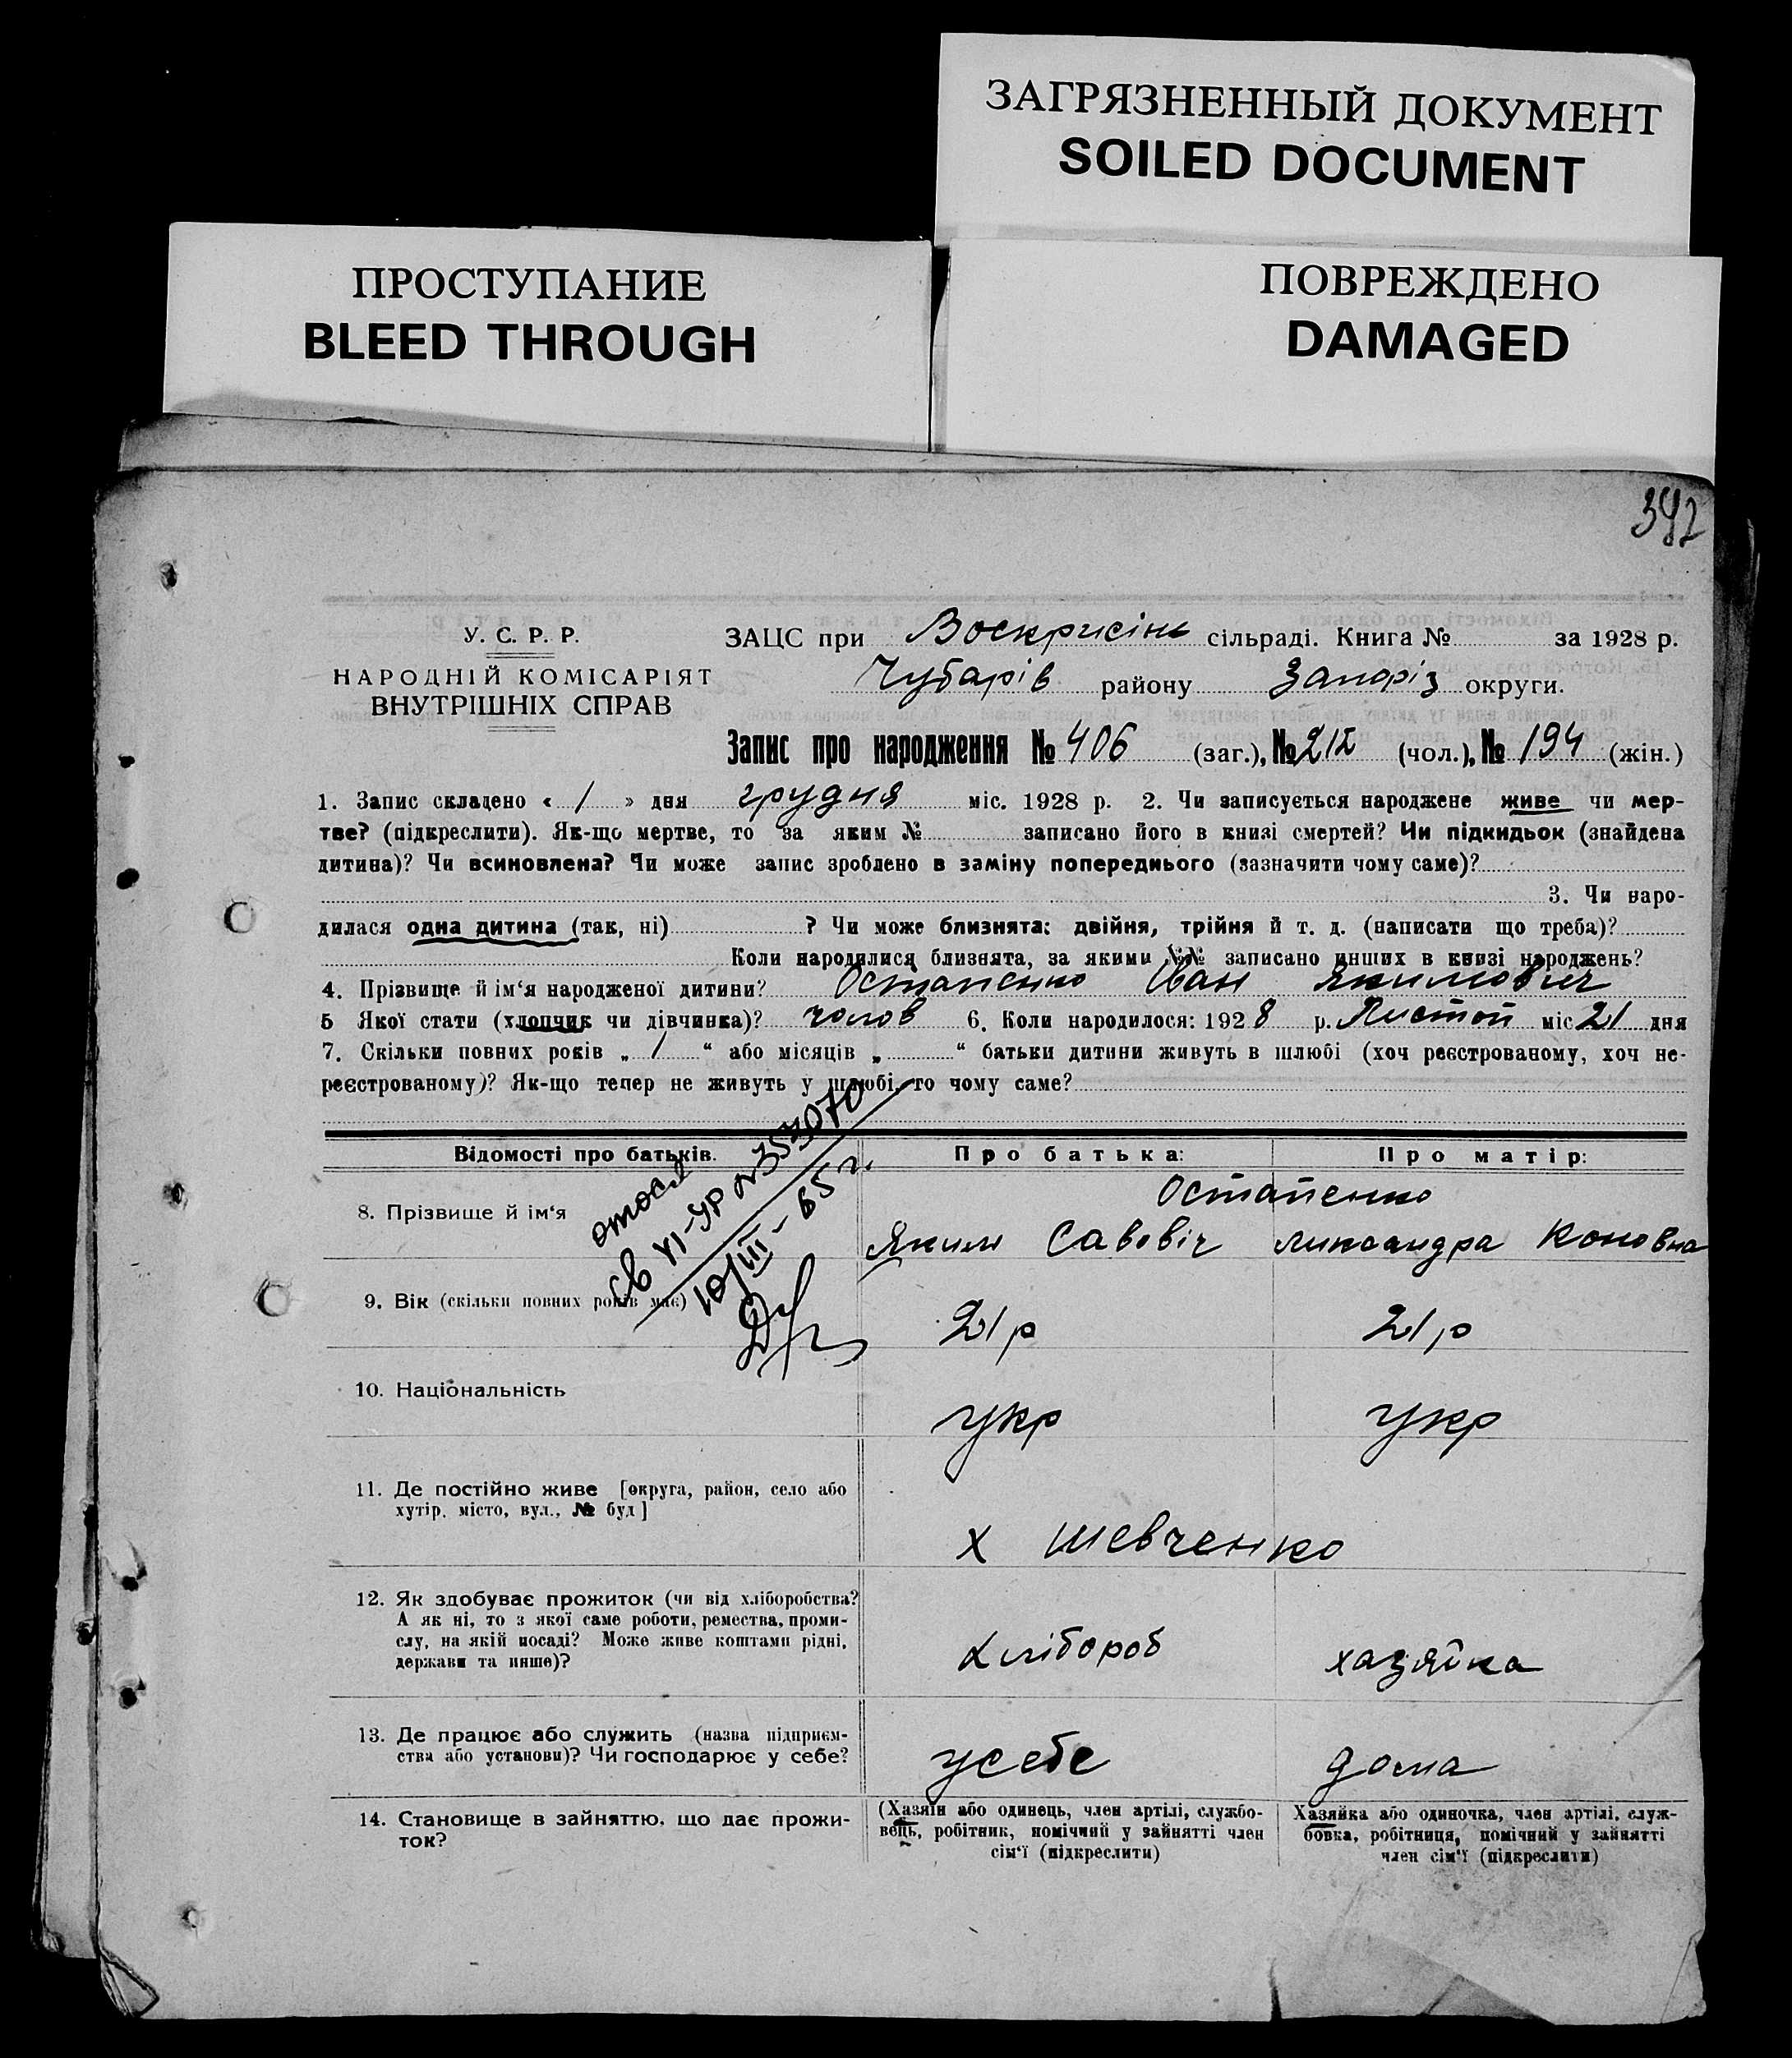 ЗАГРЯЗНЕННЫЙ ДОКУМЕНТ
SOILED DOCUMENT
ПРОСТУПАНИЕ
BLEED THROUGH
ПОВРЕЖДЕНО
DAMAGED
392
У. С. Р. Р.
НАРОДНІЙ КОМІСАРІЯТ
ВНУТРІШНІХ СПРАВ
ЗАЦС при Воскрисінь сільраді. Книга № за 1928 р.
Чубарів району Запоріз округи.
Запис про народження № 406 (заг.), № 212 (чол.), № 194 (жін.)
1. Запис складено « 1 » дня грудня міс. 1928 р. 2. Чи записується народжене живе чи мер-
тве? (підкреслити). Як-що мертве, то за яким № записано його в книзі смертей? Чи підкидьок (знайдена
дитина)? Чи всиновлена? Чи може запис зроблено в заміну попереднього (зазначити чому саме)?
3. Чи наро-
дилася одна дитина (так, ні) ? Чи може близнята: двійня, трійня й т. д. (написати що треба)?
Коли народилися близнята, за якими №№ записано инших в книзі народжень?
4. Прізвище й ім‘я народженої дитини? Остапенко Іван Якимович
5 Якої стати (хлопчик чи дівчинка)? чолов 6. Коли народилося: 1928 р. Листоп міс 21 дня
7. Скільки повних років „ 1 “ або місяців „ “ батьки дитини живуть в шлюбі (хоч реєстрованому, хоч не-
реєстрованому)? Як-що тепер не живуть у шлюбі, то чому саме?
Відомості про батьків. Про батька: Про матір:
св VI-УР №353070
10/III-65 г.
8. Прізвище й ім‘я
Остапенко
Яким Савовіч Ликсандра Коновна
9. Вік (скільки повних років має) 21 р 21 р
10. Національність укр укр
11. Де постійно живе [округа, район, село або
хутір, місто, вул., № буд]
х Шевченко
12. Як здобуває прожиток (чи від хліборобства?
А як ні, то з якої саме роботи, ремества, проми-
слу, на якій посаді? Може живе коштами рідні,
держави та инше)?
хлібороб хазяйка
13. Де працює або служить (назва підприєм-
ства або установи)? Чи господарює у себе?
усебе дома
14. Становище в зайняттю, що дає прожи-
ток?
(Хазяїн або одинець, член артілі, службо-
вець, робітник, помічний у зайнятті член
сім‘ї (підкреслити)
Хазяйка або одиночка, член артілі, служ-
бовка, робітниця, помічний у зайнятті
член сім‘ї (підкреслити)